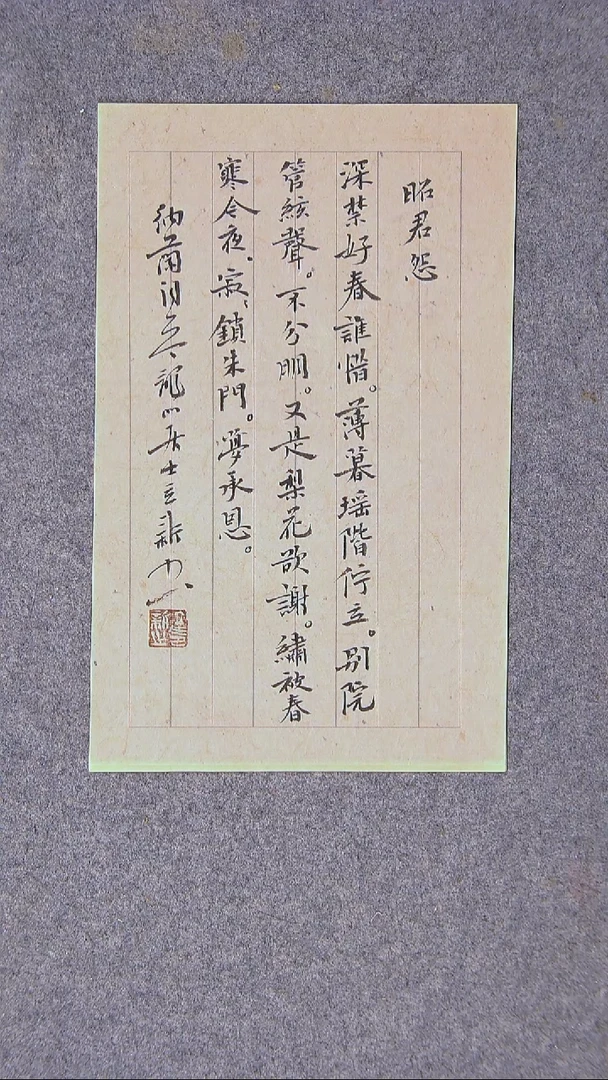 昭君怨
深禁好春誰惜。薄暮瑶階佇立。別院
管絃聲。不分明。又是梨花欲謝。繡被春
寒今夜、寂、鎖朱門。夢承恩。
納蘭词 龍山居士立新书